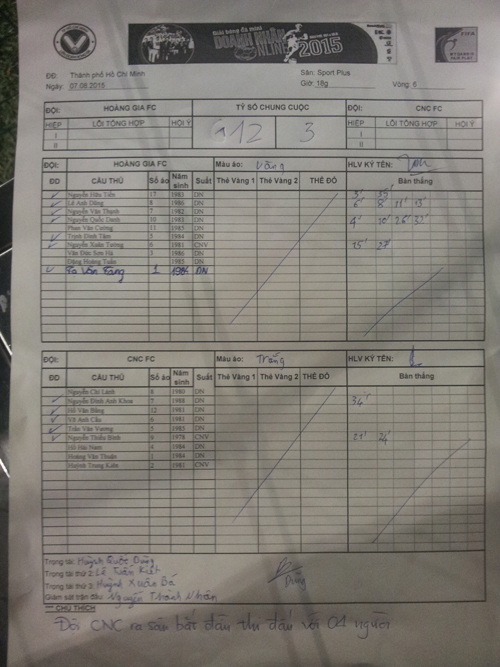 Giải bóng đá mini
DOANH NHÂN
ONLINE 2015
FIFA
ĐĐ: Thành phố Hồ Chí Minh Sân: Sport Plus
Ngày: 07.06.2015 Giờ: 18g Vòng: 6
ĐỘI: HOÀNG GIA FC TỶ SỐ CHUNG CUỘC ĐỘI: CNC FC
HIỆP LỖI TỔNG HỢP HỘI Ý 12 3 HIỆP LỖI TỔNG HỢP HỘI Ý
I I
II II
ĐỘI: HOÀNG GIA FC Màu áo: Vàng HLV KÝ TÊN:
ĐD CẦU THỦ Số áo Năm sinh Suất Thẻ Vàng 1 Thẻ Vàng 2 THẺ ĐỎ Bàn thắng
Nguyễn Hữu Tiến 17 1983 DN 3'
Lê Anh Dũng 8 1986 DN 6' 8' 11' 13'
Nguyễn Văn Thạnh 7 1982 DN
Nguyễn Quốc Danh 10 1983 DN 4' 10' 26'
Phan Văn Cường 11 1985 DN
Trịnh Đình Tâm 5 1984 DN
Nguyễn Xuân Tường 6 1981 CNV 15' 27'
Văn Đức Sơn Hà 3 1986 DN
Đặng Hoàng Tuấn 1985 DN
Văn 1 DN
ĐỘI: CNC FC Màu áo: Trắng HLV KÝ TÊN:
ĐD CẦU THỦ Số áo Năm sinh Suất Thẻ Vàng 1 Thẻ Vàng 2 THẺ ĐỎ Bàn thắng
Nguyễn Chí Lành 8 1980 DN
Nguyễn Đình Anh Khoa 7 1988 DN 34'
Hồ Văn Bằng 12 1981 DN
Võ Anh Cầu 6 1981 DN
Trần Văn Vương 5 1985 DN
Nguyễn Thiều Bình 9 1978 CNV 21' 24'
Hồ Hải Nam 4 1984 DN
Hoàng Văn Thuận 1 1984 DN
Huỳnh Trung Kiên 2 1981 CNV
Trọng tài: Huỳnh Quốc Dũng
Trọng tài thứ 2: Lê Tuấn Kiệt
Trọng tài thứ 3: Huỳnh Xuân Bá
Giám sát trận đấu: Nguyễn Thành Nhân
Dũng
CHÚ THÍCH
Đội CNC ra sân bắt đầu thi đấu với 04 người